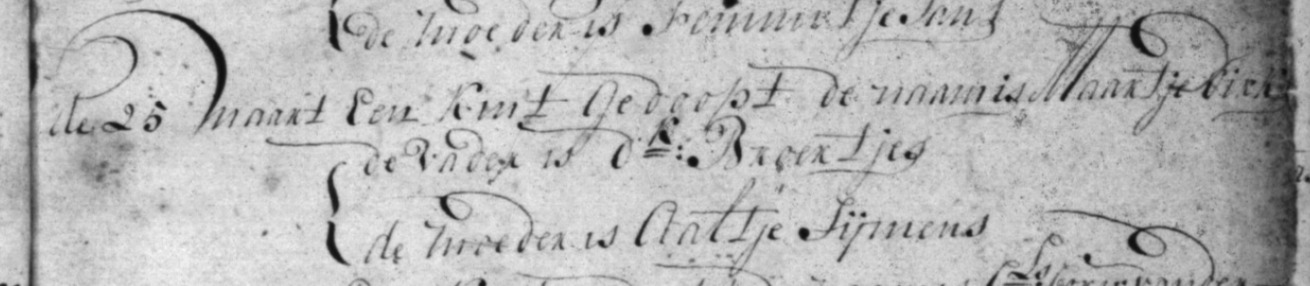 de moeder is Pommertje Jans
de 25 maart Een Kint Gedoopt de naam is Maartje dirk
de Vader is d K: Broertjes
de moeder is Aaltje Sijmens